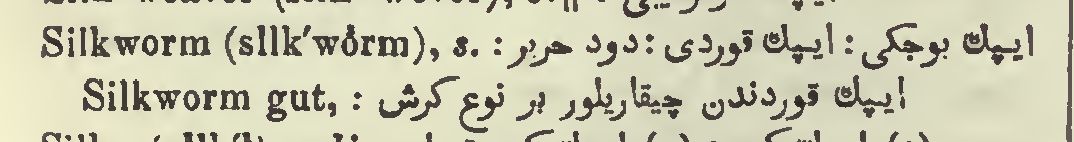 Silkworm (sĭlk′wôrm), s. : ایپك بوجكی : ایپك قوردی : دود حریر
Silkworm gut, : ایپك قوردندن چیقاریلور بر نوع كرش